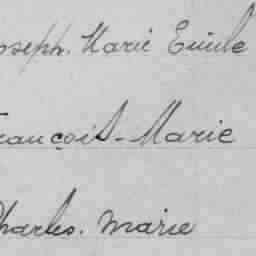 oseph. Marie Emile
rançois-Marie
harles. Marie